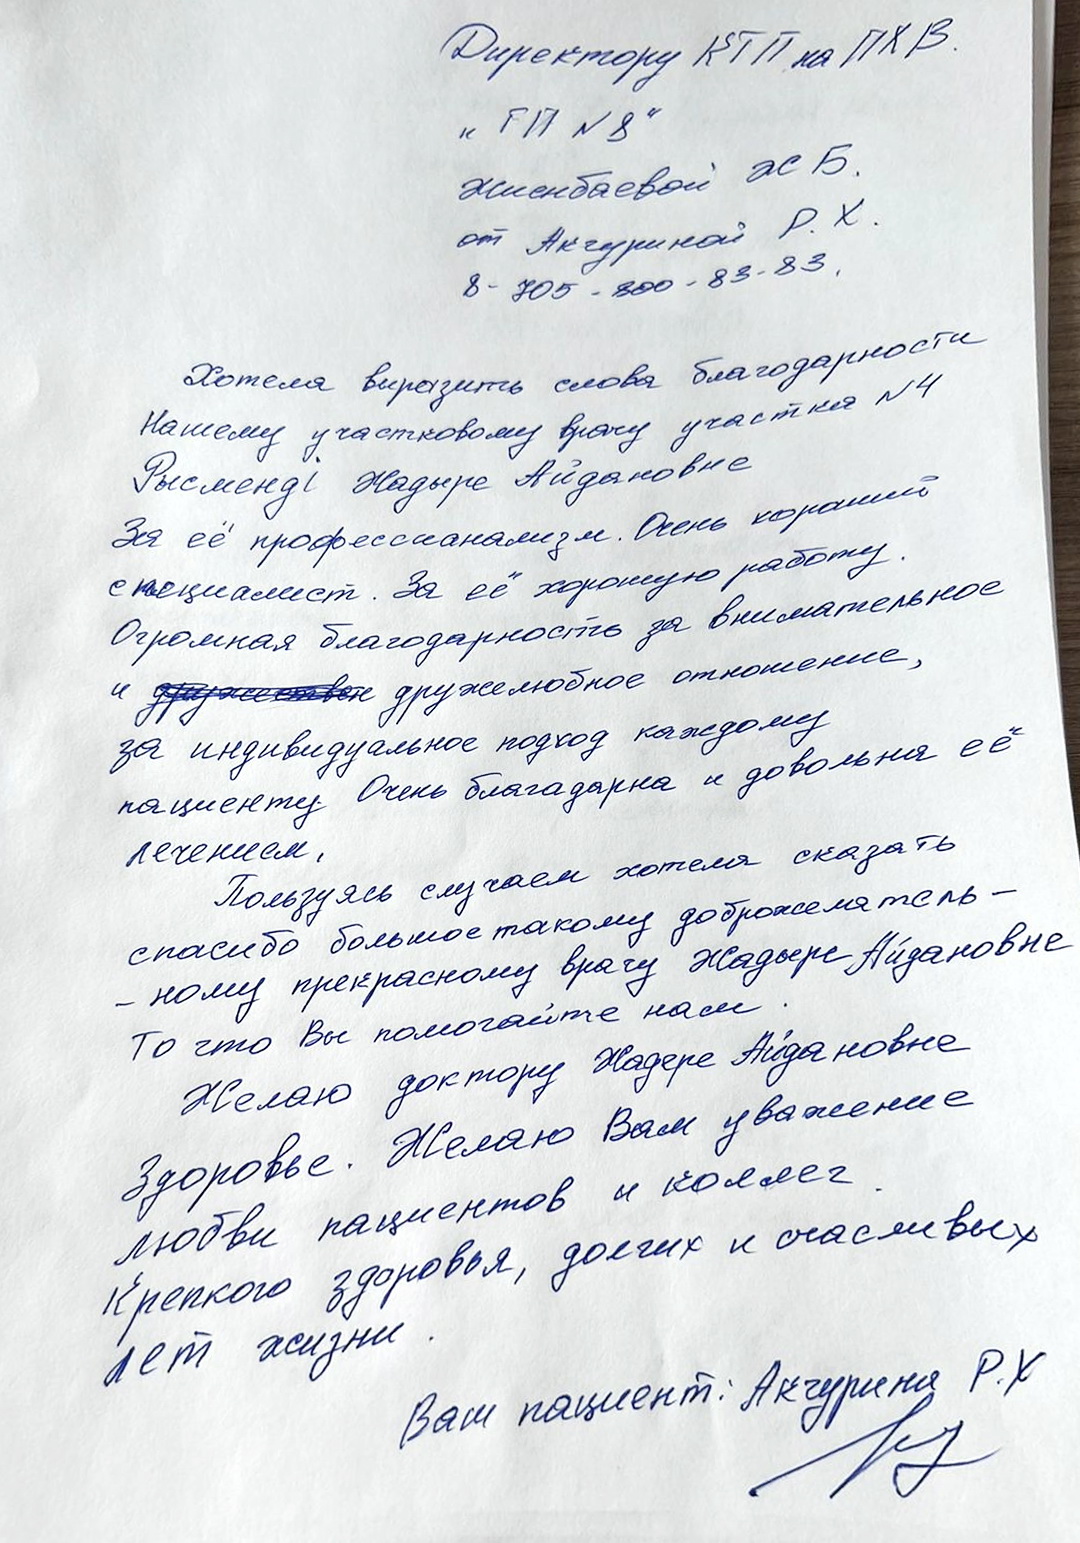 Директору КГП на ПХВ.
"ГП №8"
Жиенбаевой Ж Б.
от Акчуриной Р. Х.
8-705-800-83-83.
Хотела выразить слова благодарности
Нашему участковому врачу участка №4
Рысменді Жадыре Айдановне
За её профессианализм. Очень хораший
специалист. За её хорошую работу.
Огромная благодарность за внимательное
и дружелюбное отношение,
за индивидуальное подход каждому
пациенту. Очень благадарна и довольна её
лечением,
Пользуясь случаем хотела сказать
спасибо большое такому доброжелатель-
-ному прекрасному врачу Жадыре Айдановне
То что Вы помогайте нам.
Желаю доктору Жадере Айдановне
Здоровье. Желаю Вам уважение
любви пациентов и коллег.
Крепкого здоровья, долгих и счасливых
лет жизни.
Ваш пациент: Акчурина Р.Х